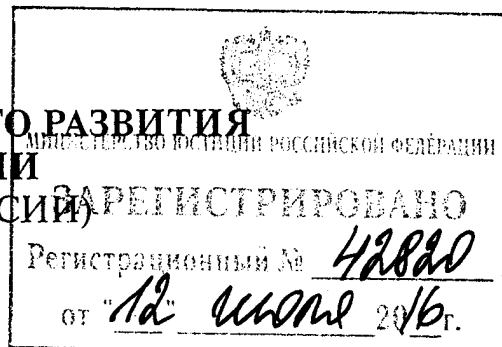 О РАЗВИТИЯ
МИНИСТЕРСТВО ЮСТИЦИИ РОССИЙСКОЙ ФЕДЕРАЦИИ
ИИ
СИИ)
ЗАРЕГИСТРИРОВАНО
Регистрационный № 42820
от "12" июля 2016г.